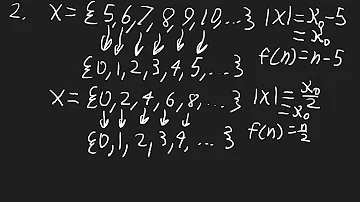 2. X = {5,6,7,8,9,10,...} |X| = ℵ₀-5
= ℵ₀
↓↓↓↓↓↓
{0,1,2,3,4,5,...} f(n)=n-5
X = {0,2,4,6,8,...} |X| = ℵ₀/2
= ℵ₀
↓↓↓↓↓
{0,1,2,3,4,...} f(n)=n/2